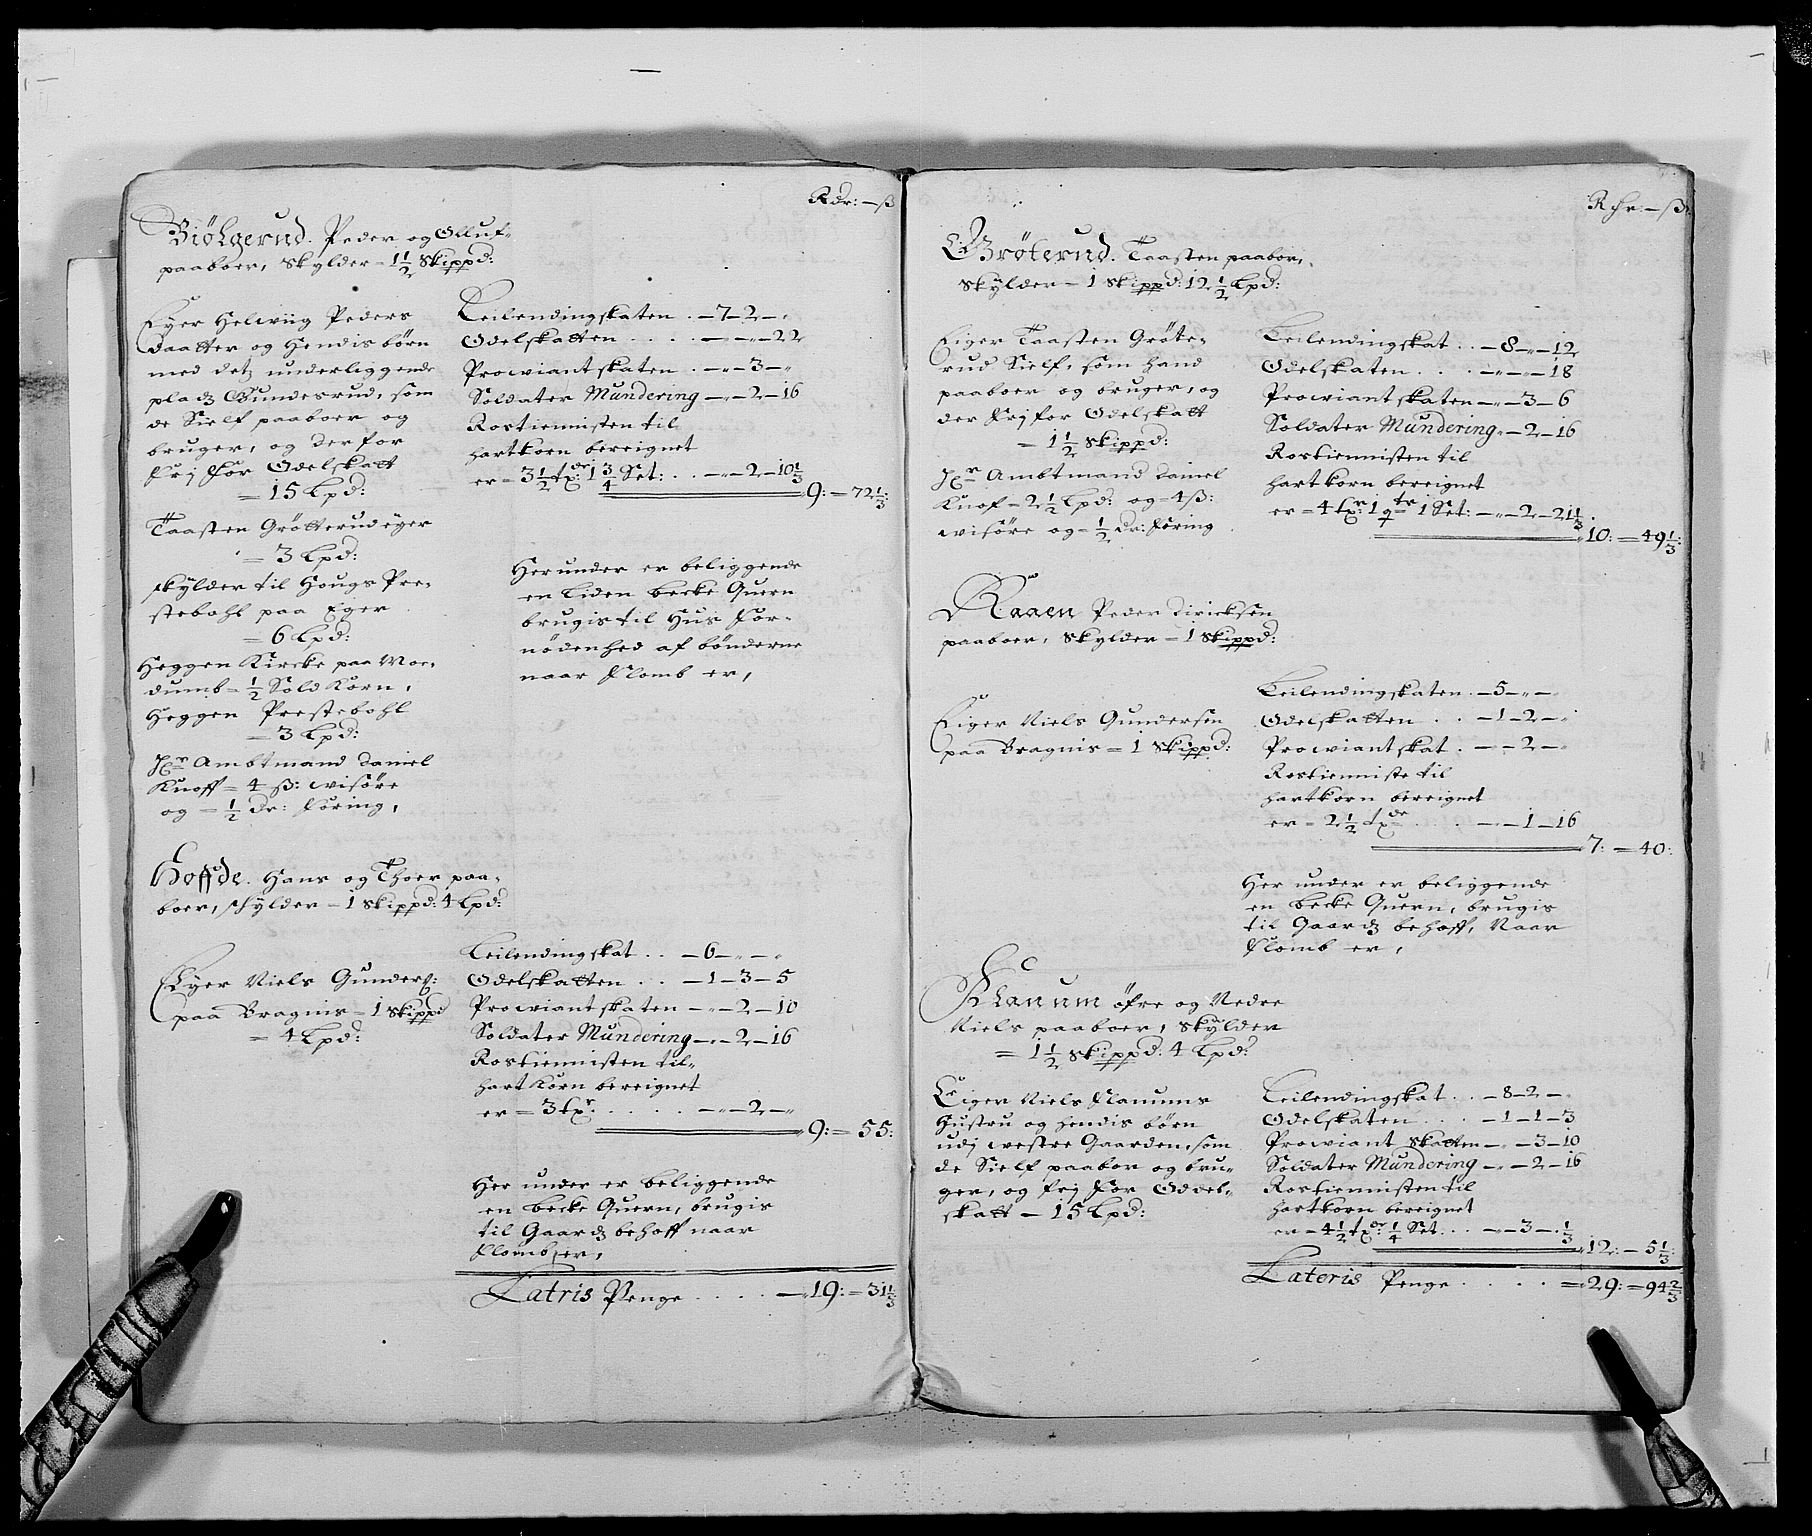 Rdr: — ß
Biölgerud. Peder og Olluf
paaboer, skylder = 1 1/2 Skippd:
Eyer Helwiig Peders
daatter og Hendis børn
med detz underliggende
pladz Gundesrud, som
de Sielf paaboer og
bruger, og derfor
frj for Odelskatt
= 15 Lpd:
Taasten Grötterud eyer
= 3 Lpd:
skylder til Hougs Pre-
stebohl paa Eger
= 6 Lpd:
Heggen Kircke paa Mo-
dumb = 1/2 Sold Korn,
Heggen Prestebohl
= 3 Lpd:
Hr Ambtmand Daniel
Knoff = 4 ß: wisöre
og = 1/2 Dr: föring,
Leilendingskaten . — 7 — 2 — „
Odelskatten . . . . — „ — „ — 22
Prowiantskaten . — „ — 3 — „
Soldater Mundering — „ — 2 — 16
Rostiennisten til
hartkorn bereignet
er = 3 1/2 txr: 1 3/4 Set: . . — „ — 2 — 10 1/3
9: = 72 1/3:
Herunder er beliggende
en liden becke Quern
brugis til Hus for-
nödenhed af bönderne
naar flomb er,
Hoffde. Hans og Thoer paa-
boer, skylder — 1 Skippd: 4 Lpd:
Eyer Niels Gunders:
paa Bragnis = 1 Skippd
= 4 Lpd:
Leilendingskat . . — 6 — „ — „
Odelskatten . . — 1 — 3 — 5
Prowiantskaten — „ — 2 — 10
Soldater Mundering — „ — 2 — 16
Rostiennisten til-
hart Korn bereignet
er = 3 txr: . . . . . — „ — 2 — „
9: = 55:
Her under er beliggende
en becke Quern, brugis
til Gaardz behoff naar
flomb er,
Latris Penge . . . . . — 19: = 31 1/3
Rdr: — ß
Gröterud. Taasten paaboer,
skylder — 1 Skippd: 12 1/2 Lpd:
Eiger Taasten Gröte-
rud Sielf, som hand
paaboer og bruger, og
der frj for Odelskatt
= 1 1/2 Skippd:
Hr Ambtmand Daniel
Knof = 2 1/2 Lpd: og = 4 ß:
wisöre og = 1/2 Dr: föring
Leilendingskat . . — 8 — „ — 12
Odelskaten . . . — „ — „ — 18
Prowiantskaten — „ — 3 — 6
Soldater Mundering „ — 2 — 16
Rostiennisten til
hartkorn bereignet
er = 4 txr 1 qtr 1 Set: — „ — 2 — 21 1/3
10: = 49 1/3:
Raaen Peder Diricksen
paaboer, skylder = 1 Skippd:
Eiger Niels Gundersen
paa Bragnis = 1 Skippd:
Leilendingskaten . — 5 — „ — „
Odelskatten . . — 1 — 2 — „
Prowiantskat . — „ — 2 — „
Rostienniste til
hartkorn bereignet
er = 2 1/2 tx . . . . — „ — 1 — 16
7: = 40:
Her under er beliggende
en becke Quern, brugis
til Gaardz behoff, Naar
flomb er,
Flanum öfre og Nedre
Niels paaboer, skylder
= 1 1/2 Skippd. 4 Lpd:
Eiger Niels Flanums
Hustru og Hendis börn
udj westre Gaarden, som
de Sielf paaboer og bru-
ger, og frj for Oddel-
skatt — 15 Lpd:
Leilendingskat . . — 8 — 2 — „
Odelskaten . . . — 1 — 1 — 3
Prowiant skatten — „ — 3 — 10
Soldater Mundering — „ — 2 — 16
Rostiennisten til
hartkorn bereignet
er = 4 1/2 txr: 1/4 Set . . — „ — 3 — 1/3
12: — 5 1/3:
Lateris Penge . . . . = 29: = 94 2/3